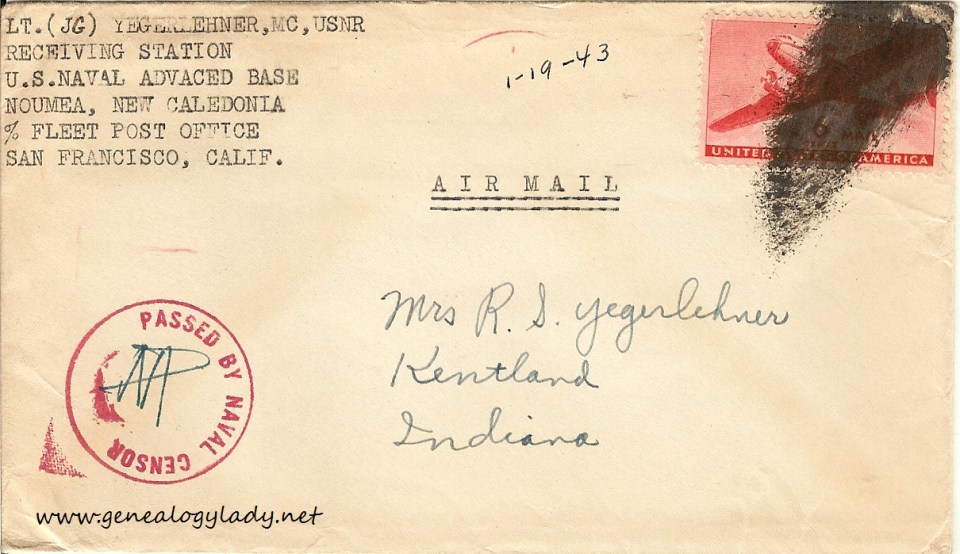 LT.(JG) YEGERLEHNER,MC,USNR
RECEIVING STATION
U.S.NAVAL ADVACED BASE
NOUMEA, NEW CALEDONIA
% FLEET POST OFFICE
SAN FRANCISCO, CALIF.
1-19-43
6
UNITED AMERICA
AIR MAIL
Mrs R. S. Yegerlehner
Kentland
Indiana
PASSED BY NAVAL CENSOR
www.genealogylady.net